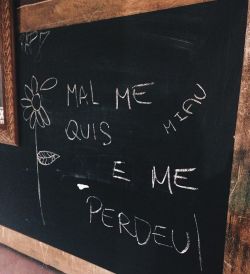 MAL ME
MIAU
QUIS
E ME
PERDEU